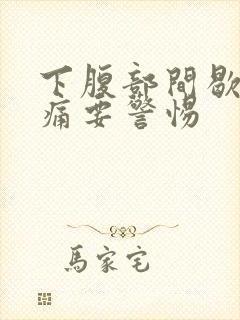 下腹部間歇
痛要警惕
馬家宅